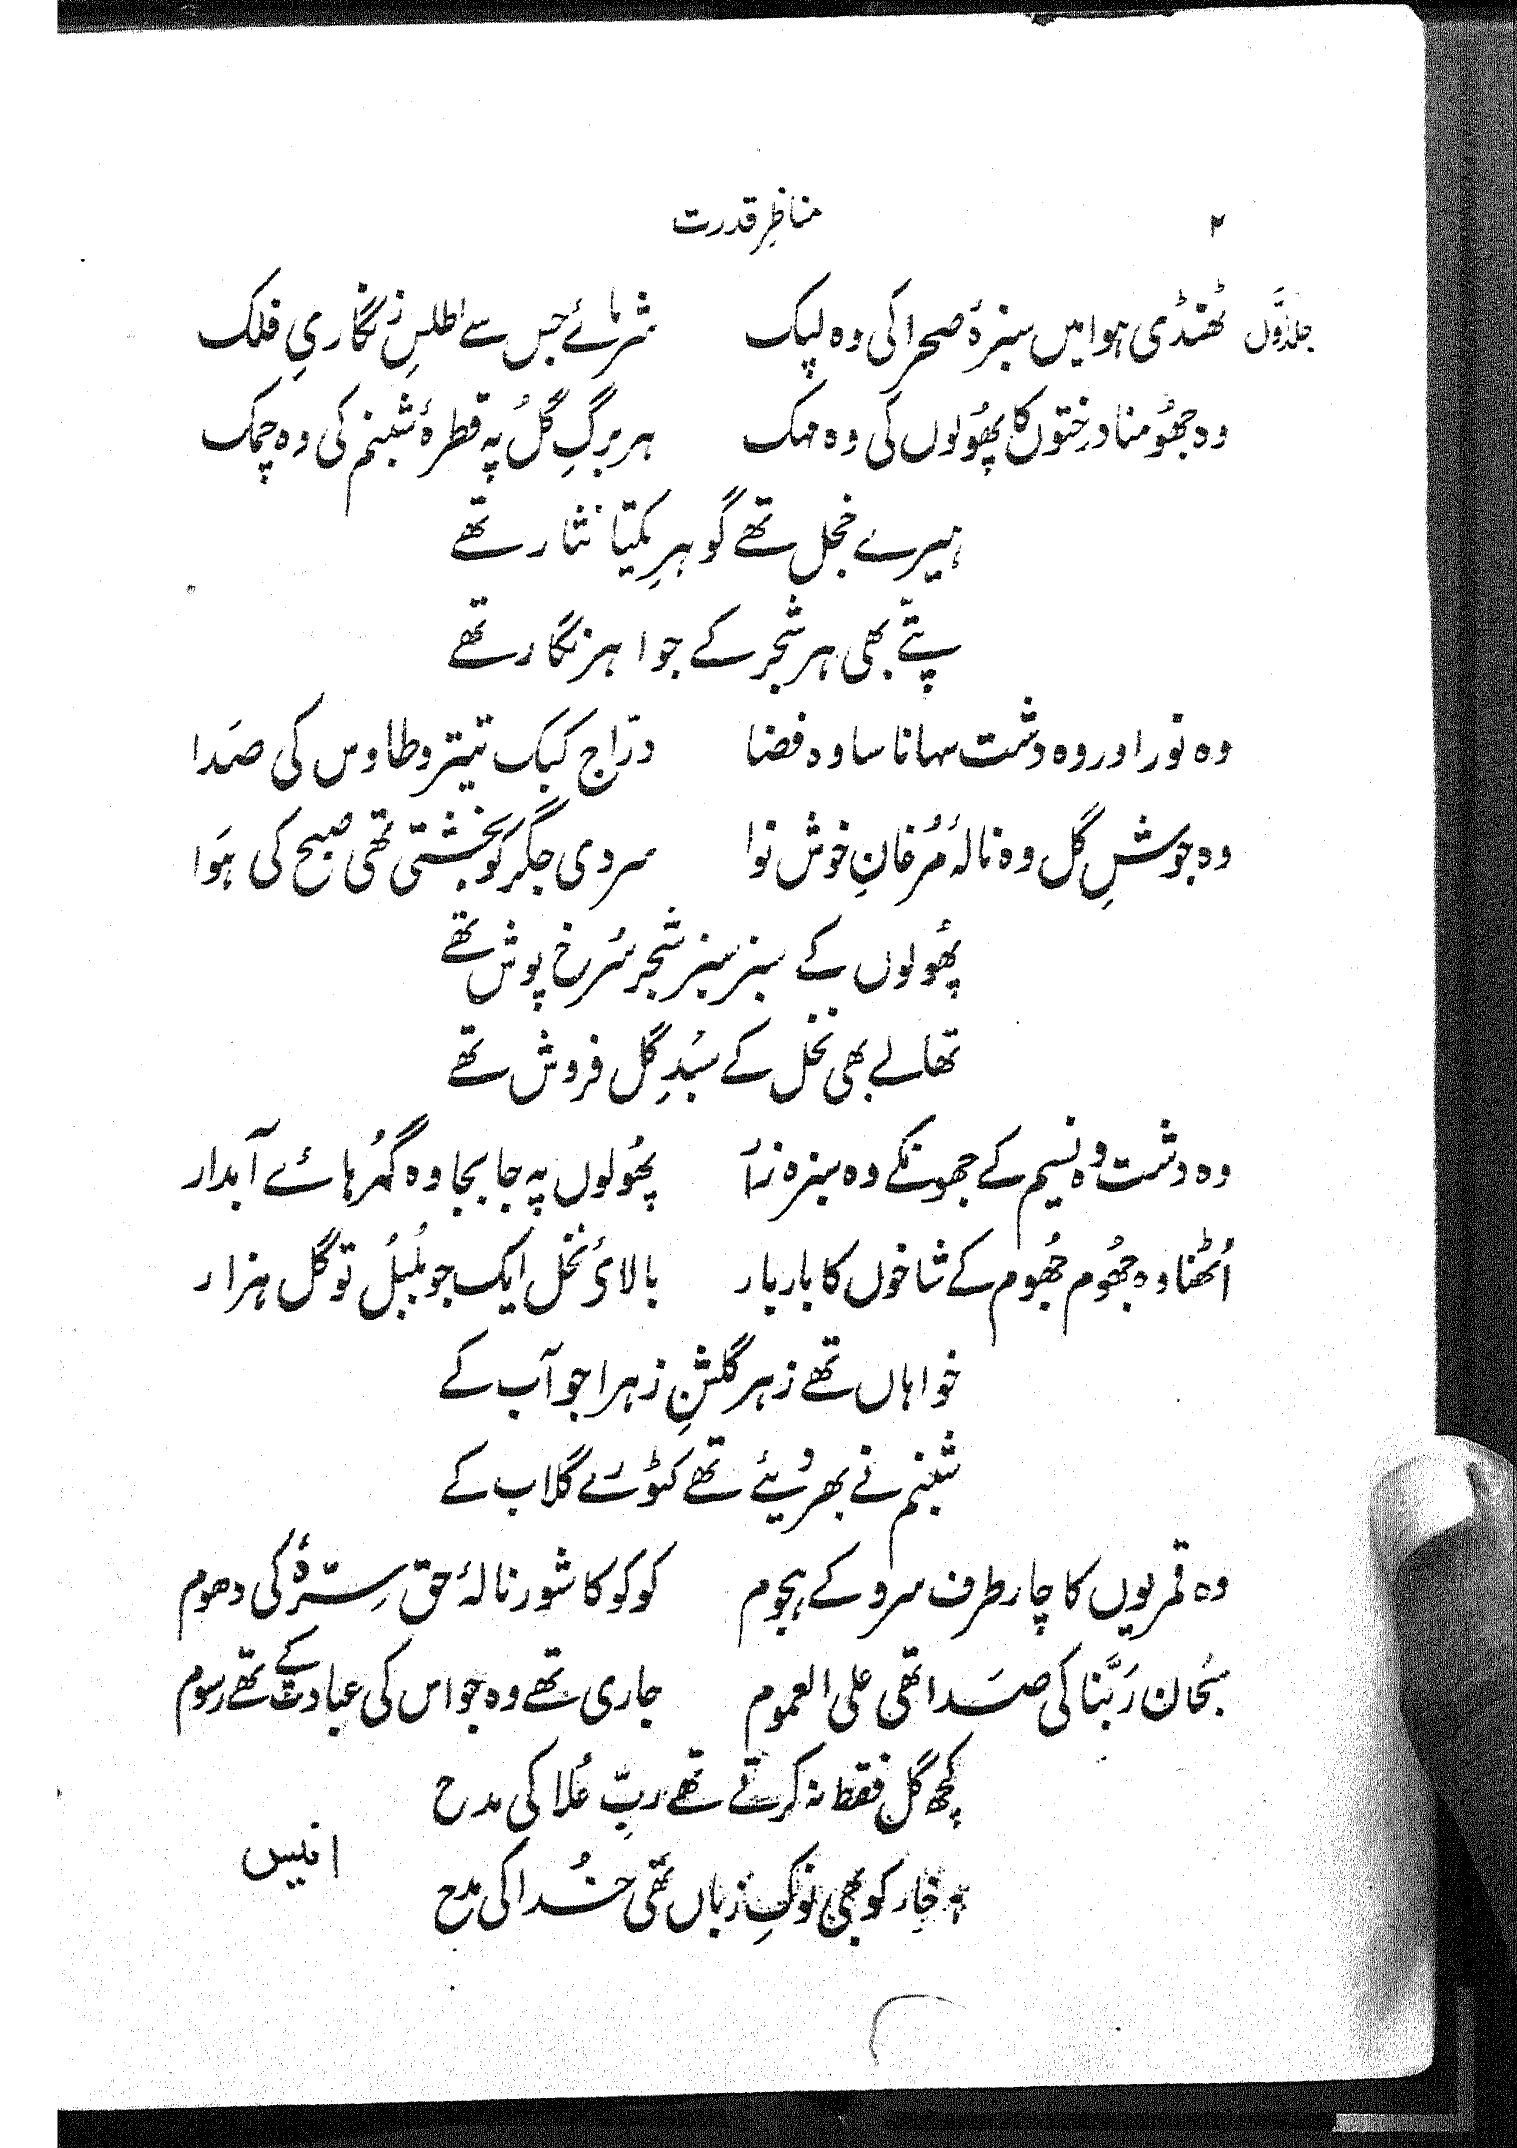 ۲
مناظرِ قدرت
جلد اوّل
ٹھنڈی ہوا میں سبزۂ صحرا کی وہ لپک شرمائے جس سے اطلسِ زنگاریِ فلک
وہ جھُومنا درختوں کا پھُولوں کی وہ مہک ہر برگِ گُل پہ قطرۂ شبنم کی وہ چمک
ہیرے خجل تھے گوہرِ یکتا نثار تھے
پتّے بھی ہر شجر کے جواہر نگار تھے
وہ نور اور وہ دشت سہانا سا وہ فضا درّاج کبک تیتر و طاوس کی صَدا
وہ جوشِ گل وہ نالۂ مُرغانِ خوش نوا سردی جگر کو بخشتی تھی صبح کی ہَوا
پھُولوں کے سبز سبز شجر سُرخ پوش تھے
تھالے بھی نخل کے سبُدِ گل فروش تھے
وہ دشت وہ نسیم کے جھونکے وہ سبزہ زار پھُولوں پہ جا بجا وہ گُہرہائے آبدار
اُٹھنا وہ جھُوم جھُوم کے شاخوں کا بار بار بالائے نخل ایک جو بلبُل تو گل ہزار
خواہاں تھے زہر گلشنِ زہرا جو آب کے
شبنم نے بھر دیئے تھے کٹورے گلاب کے
وہ قمریوں کا چار طرف سرو کے ہجوم کوکو کا شور نالۂ حق سِرّہٗ کی دھوم
سبحان رَبَّنا کی صَدا تھی علی العموم جاری تھے وہ جو اس کی عبادت کے تھے رسوم
کچھ گل فقط نہ کرتے تھے ربِّ عُلا کی مدح
ہر خار کو بھی نوکِ زباں تھی خُدا کی مدح
انیس